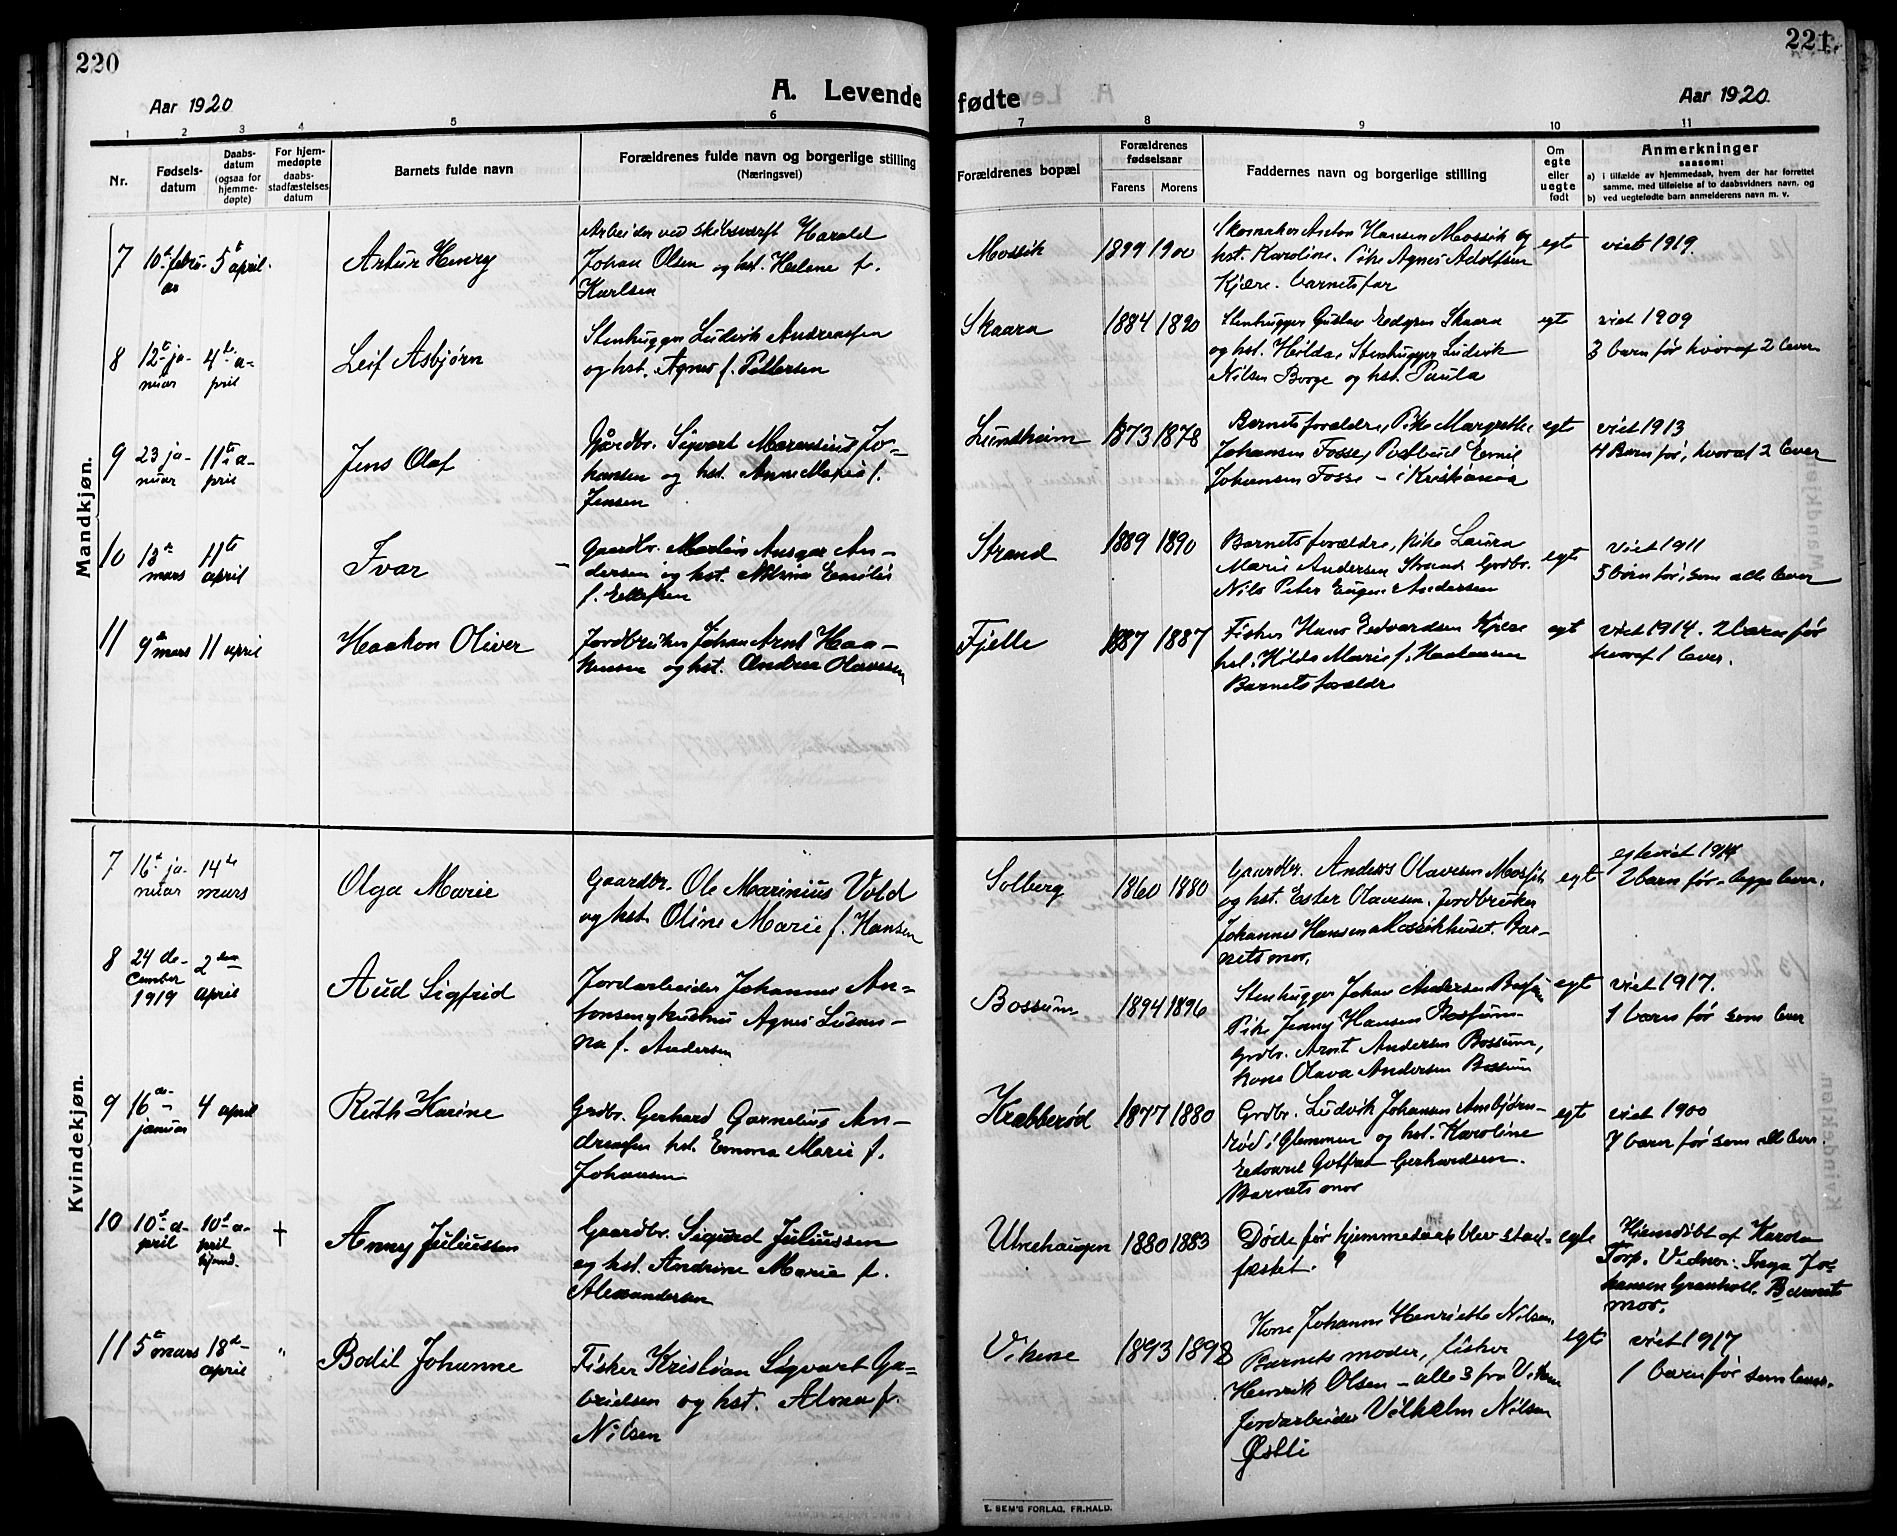 220
Aar 1920
A. Levende
1
2
3
4
5
6
Nr.
Fødsels-
datum
Daabs-
datum
(ogsaa for
hjemme-
døpte)
For hjem-
medøpte
daabs-
stadfæstelses
datum
Barnets fulde navn
Forældrenes fulde navn og borgerlige stilling
(Næringsvei)
Mandkjøn.
7
10de febru-
ar
5te april.
Artur Henry
Arbeider ved skibsverft Harald
Johan Olsen og hst. Helene f.
Karlsen
8
12te ja-
nuar
4de a-
pril
Leif Asbjørn
Stenhugger Ludvik Andreassen
og hst. Agnes f. Pettersen
9
23 ja-
nuar
11te a-
pril
Jens Olaf
Gårdbr. Sigvart Marensius Jo-
hansen og hst. Anne Marie f.
Jensen
10
13de
mars
11te
april
Ivar
Gaardbr. Martin Ansgar An-
dersen og hst. Emilie
f. Ellefsen
11
9de mars
11 april
Haakon Oliver
Jordbruker Johan Arnt Haa-
kensen og hst. Andrea Olavesen
Kvindekjøn.
7
16de ja-
nuar
14de
mars
Olga Marie
Gaardbr. Ole Marinius Vold
og hst. Oline Marie f. Hansen
8
24 de-
cember
1919
2den
april
Aud Sigfrid
Jordarbeider Johannes An-
tonsen og hustru Agnes Susan-
na f. Andersen
9
16de
januar
4 april
Ruth Karine
Grdbr. Gerhard Cornelius An-
dreassen hst. Emma Marie f.
Johansen
10
10de a-
pril
10de a-
pril
hjmd.
†
Anny Juliussen
Gaardbr. Sigurd Juliussen
og hst. Andrine Marie f.
Alexandersen
11
5te mars
18de
april
"
Bodil Johanne
Fisker Kristian Sigvart Ga-
brielsen og hst. Alma f.
Nilsen
221
fødte
Aar 1920.
7
8
9
10
11
Forældrenes bopæl
Forældrenes
fødselsaar
Farens
Morens
Faddernes navn og borgerlige stilling
Om
egte
eller
uegte
født
Anmerkninger
saasom:
a) i tilfælde av hjemmedaab, hvem der har forrettet
samme, med tilføielse af to daabsvidners navn, og
b) ved uegtefødte barn anmelderens navn m. v.
Mossik
1899
1900
Skomaker Anton Hansen Mossik og
hst. Karoline. Pike Agnes Adolfsen
Kjære. barnets far
egt
viet 1919.
Skaara
1884
1890
Stenhugger Gustav Edgren Skaara
og hst. Hilda, Stenhugger Ludvik
Nilsen Borge og hst. Paula
egt
viet 1909
3 barn før hvoraf 2 lever
Lundheim
1873
1878
Barnets forældre, Pike Margrethe
Johansen Fosse, Postbud Emil
Johansen Fosse - i Kristiania
egt
viet 1913
4 Barn før, hvoraf 2 lever
Strand
1889
1890
Barnets forældre, Pike Laura
Marie Andersen Strand Grdbr.
Nils Peter Eugen Andersen
egt
viet 1911
5 børn før, som alle lever
Fjelle
1887
1887
Fisker Hans Edvardsen Kjære
hst. Hilda Marie f. Haakensen
Barnets forældre
egt
viet 1914. 2 barn før
hvoraf 1 lever.
Solberg
1860
1880
Gaardbr. Anders Olavesen Mossik
og hst. Ester Olavesen. Jordbruker
Johannes Hansen Mossikhuset. Bar-
nets mor.
egt
egteviet 1914
2 barn før - begge lever.
Bossum
1894
1896
Stenhugger Johan Andersen Bossum
Pike Jenny Hansen Bossum
Grdbr. Arnt Andersen Bossum,
kone Olava Andersen Bossum
egt
viet 1917.
1 barn før som lever
Krabberød
1877
1880
Grdbr. Ludvik Johansen Ambjørn-
rød i Glemmen og hst. Karoline
Edvard Gotfrat Gerhardsen.
Barnets mor
egt
viet 1900
7 barn før som alle lever.
Utnehaugen
1880
1883
Døde før hjemmedaab blev stad-
fæstet.
egte
Hjemdøbt af Karoline
Torp. Vidner: Inga Jo-
hansen Granholt. Barnets
mor.
Vikene
1893
1898
Kone Johanne Henriette Nilsen.
Barnets moder, fisker
Henrik Olsen - alle 3 fra Vikene
Jordarbeider Vilhelm Nilsen
Østli
egt
viet 1917
1 barn før som lever.
E. SEM'S FORLAG, FR.HALD.